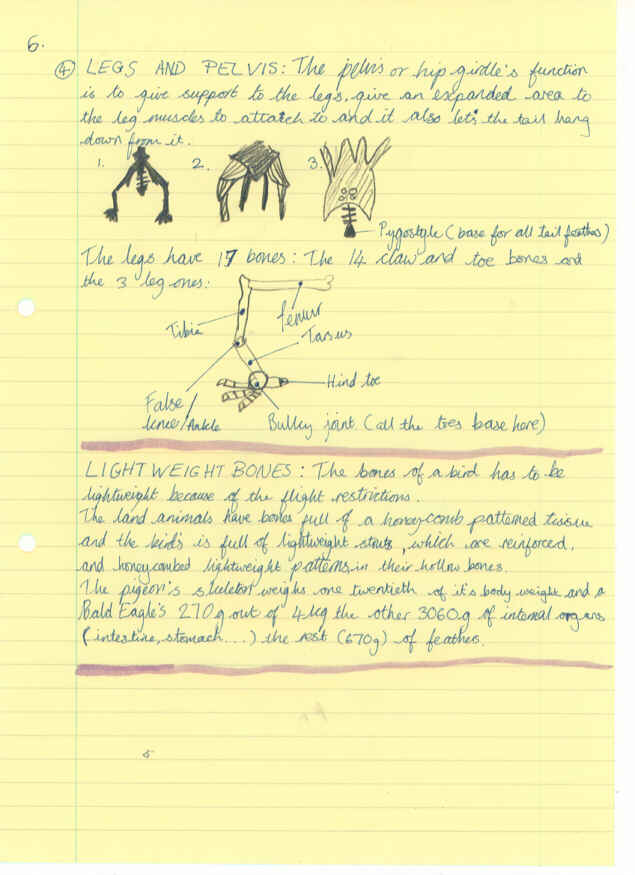 6.
④ LEGS AND PELVIS: The pelvis or hip girdle's function
is to give support to the legs, give an expanded area to
the leg muscles to attatch to and it also let's the tail hang
down from it.
1. 2. 3.
Pygostyle (base for all tail feathers)
The legs have 17 bones: The 14 claw and toe bones and
the 3 leg ones:
femur
Tibia
Tarsus
Hind toe
False
knee/Ankle
Bulky joint (all the toes base here)
LIGHTWEIGHT BONES: The bones of a bird has to be
lightweight because of the flight restrictions.
The land animals have bones full of a honey-comb patterned tissue
and the bird's is full of lightweight struts, which are reinforced,
and honeycombed lightweight patterns in their hollow bones.
The pigeon's skeleton weighs one twentieth of it's body weight and a
Bald Eagle's 270g out of 4kg the other 3060g of internal organs
(intestine, stomach....) the rest (670g) of feathers.